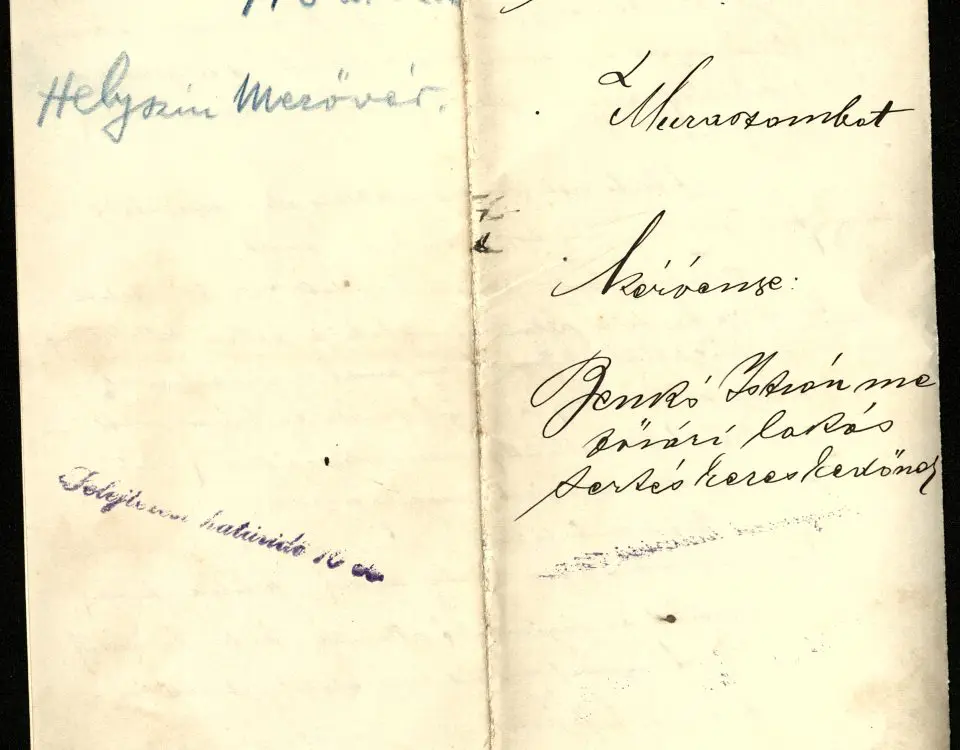 Helyszin Mezővár.
Felejtezesi határidő 16
Muraszombat
Kérvénye:
Benkó István me
zővári lakós
sertéskereskedőnek